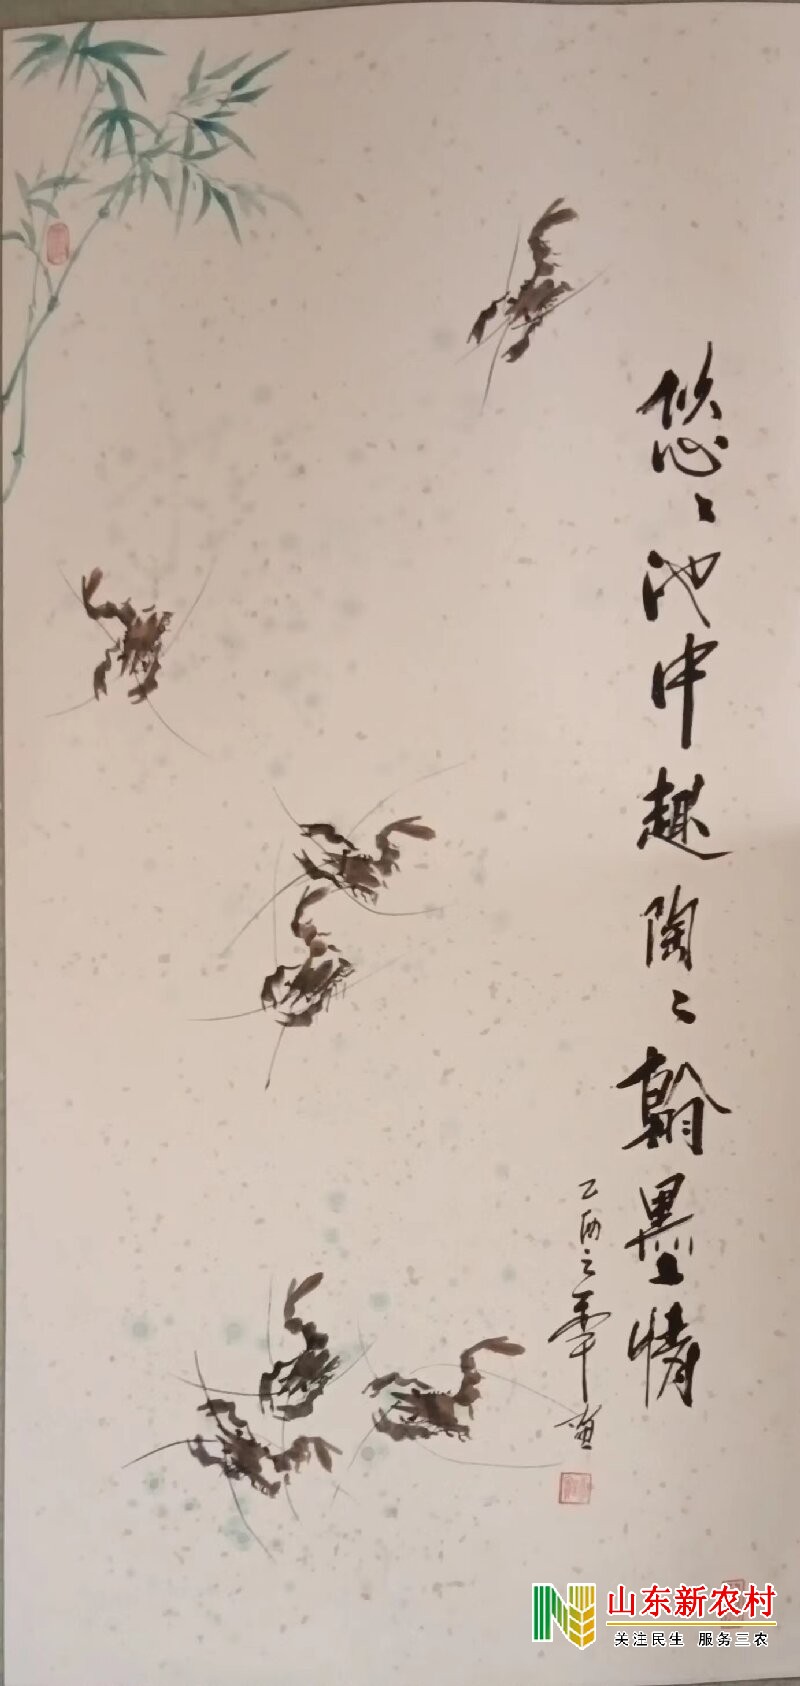 悠〻池中趣陶〻翰墨情
乙酉之年画
山东新农村
关注民生 服务三农